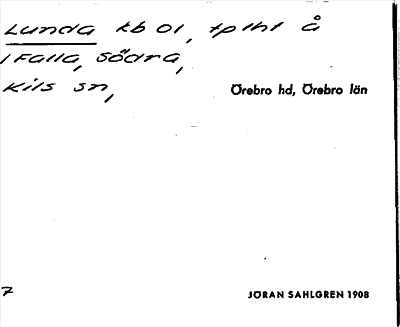 Lunda kb 01, tplht å
/ Falla, Södra,
Kils sn,
Örebro hd, Örebro län
7
JÖRAN SAHLGREN 1908